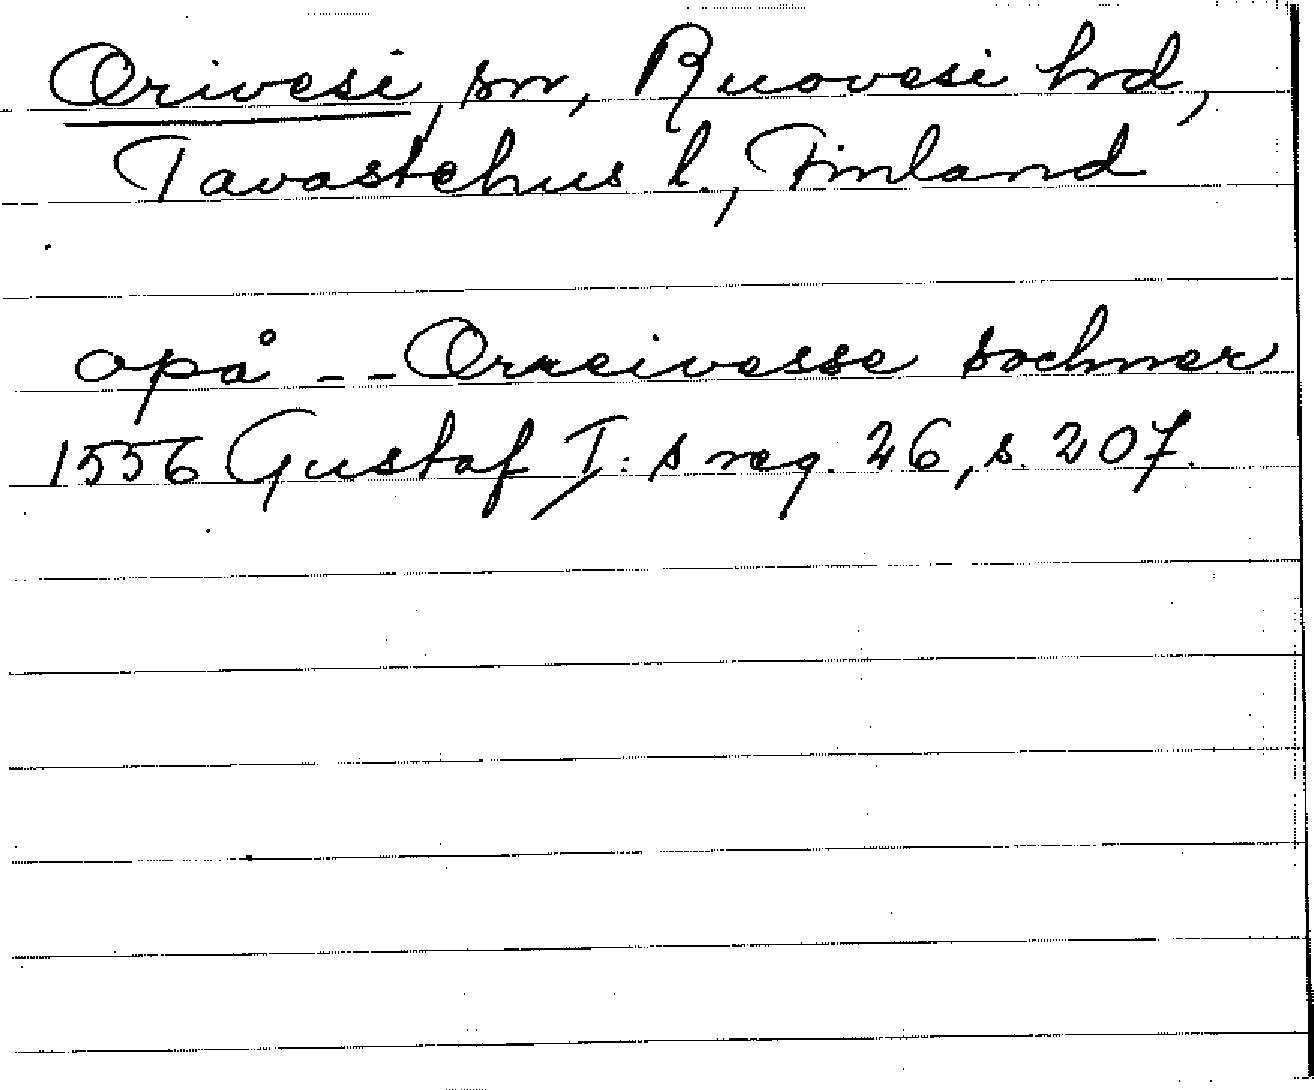 Orivesi, sn, Ruovesi hrd,
Tavastehus l., Finland
opå -- Orreivesse sochner
1556 Gustaf I:s reg. 26, s. 207.